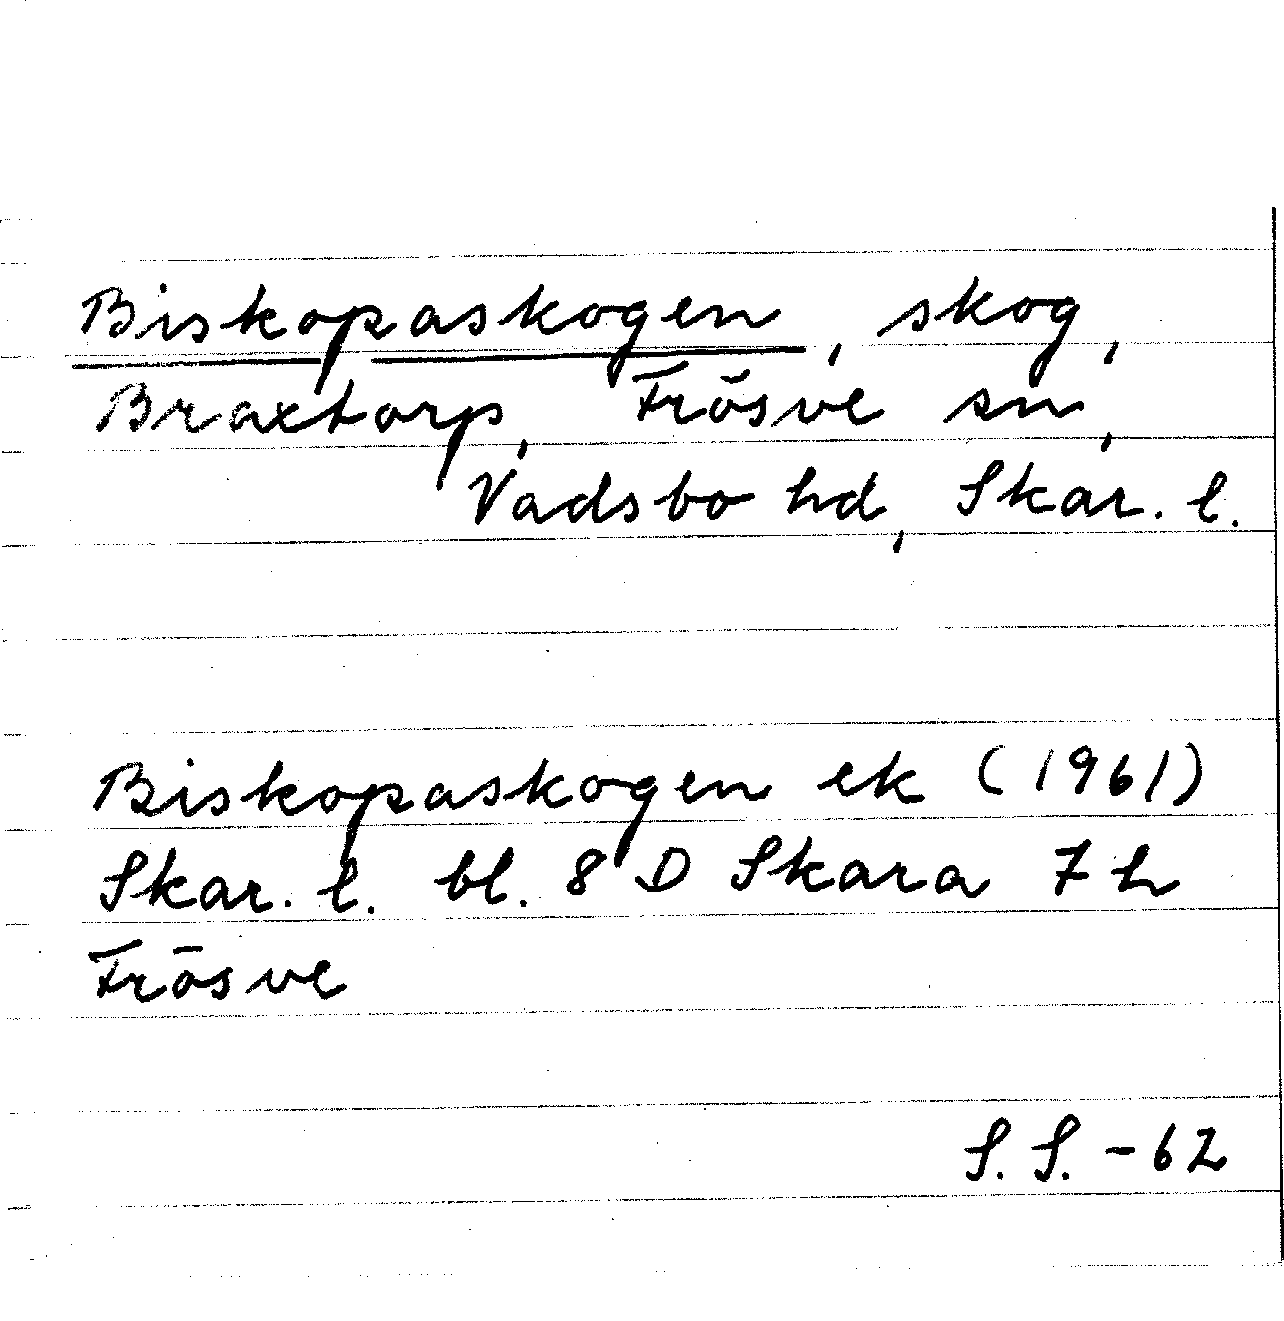 Biskopaskogen, skog,
Braxtorp, Frösve sn,
Vadsbo hd, Skar. l.
Biskopaskogen ek (1961)
Skar. l. bl. 8 D Skara 7 h
Frösve
S. S. - 62